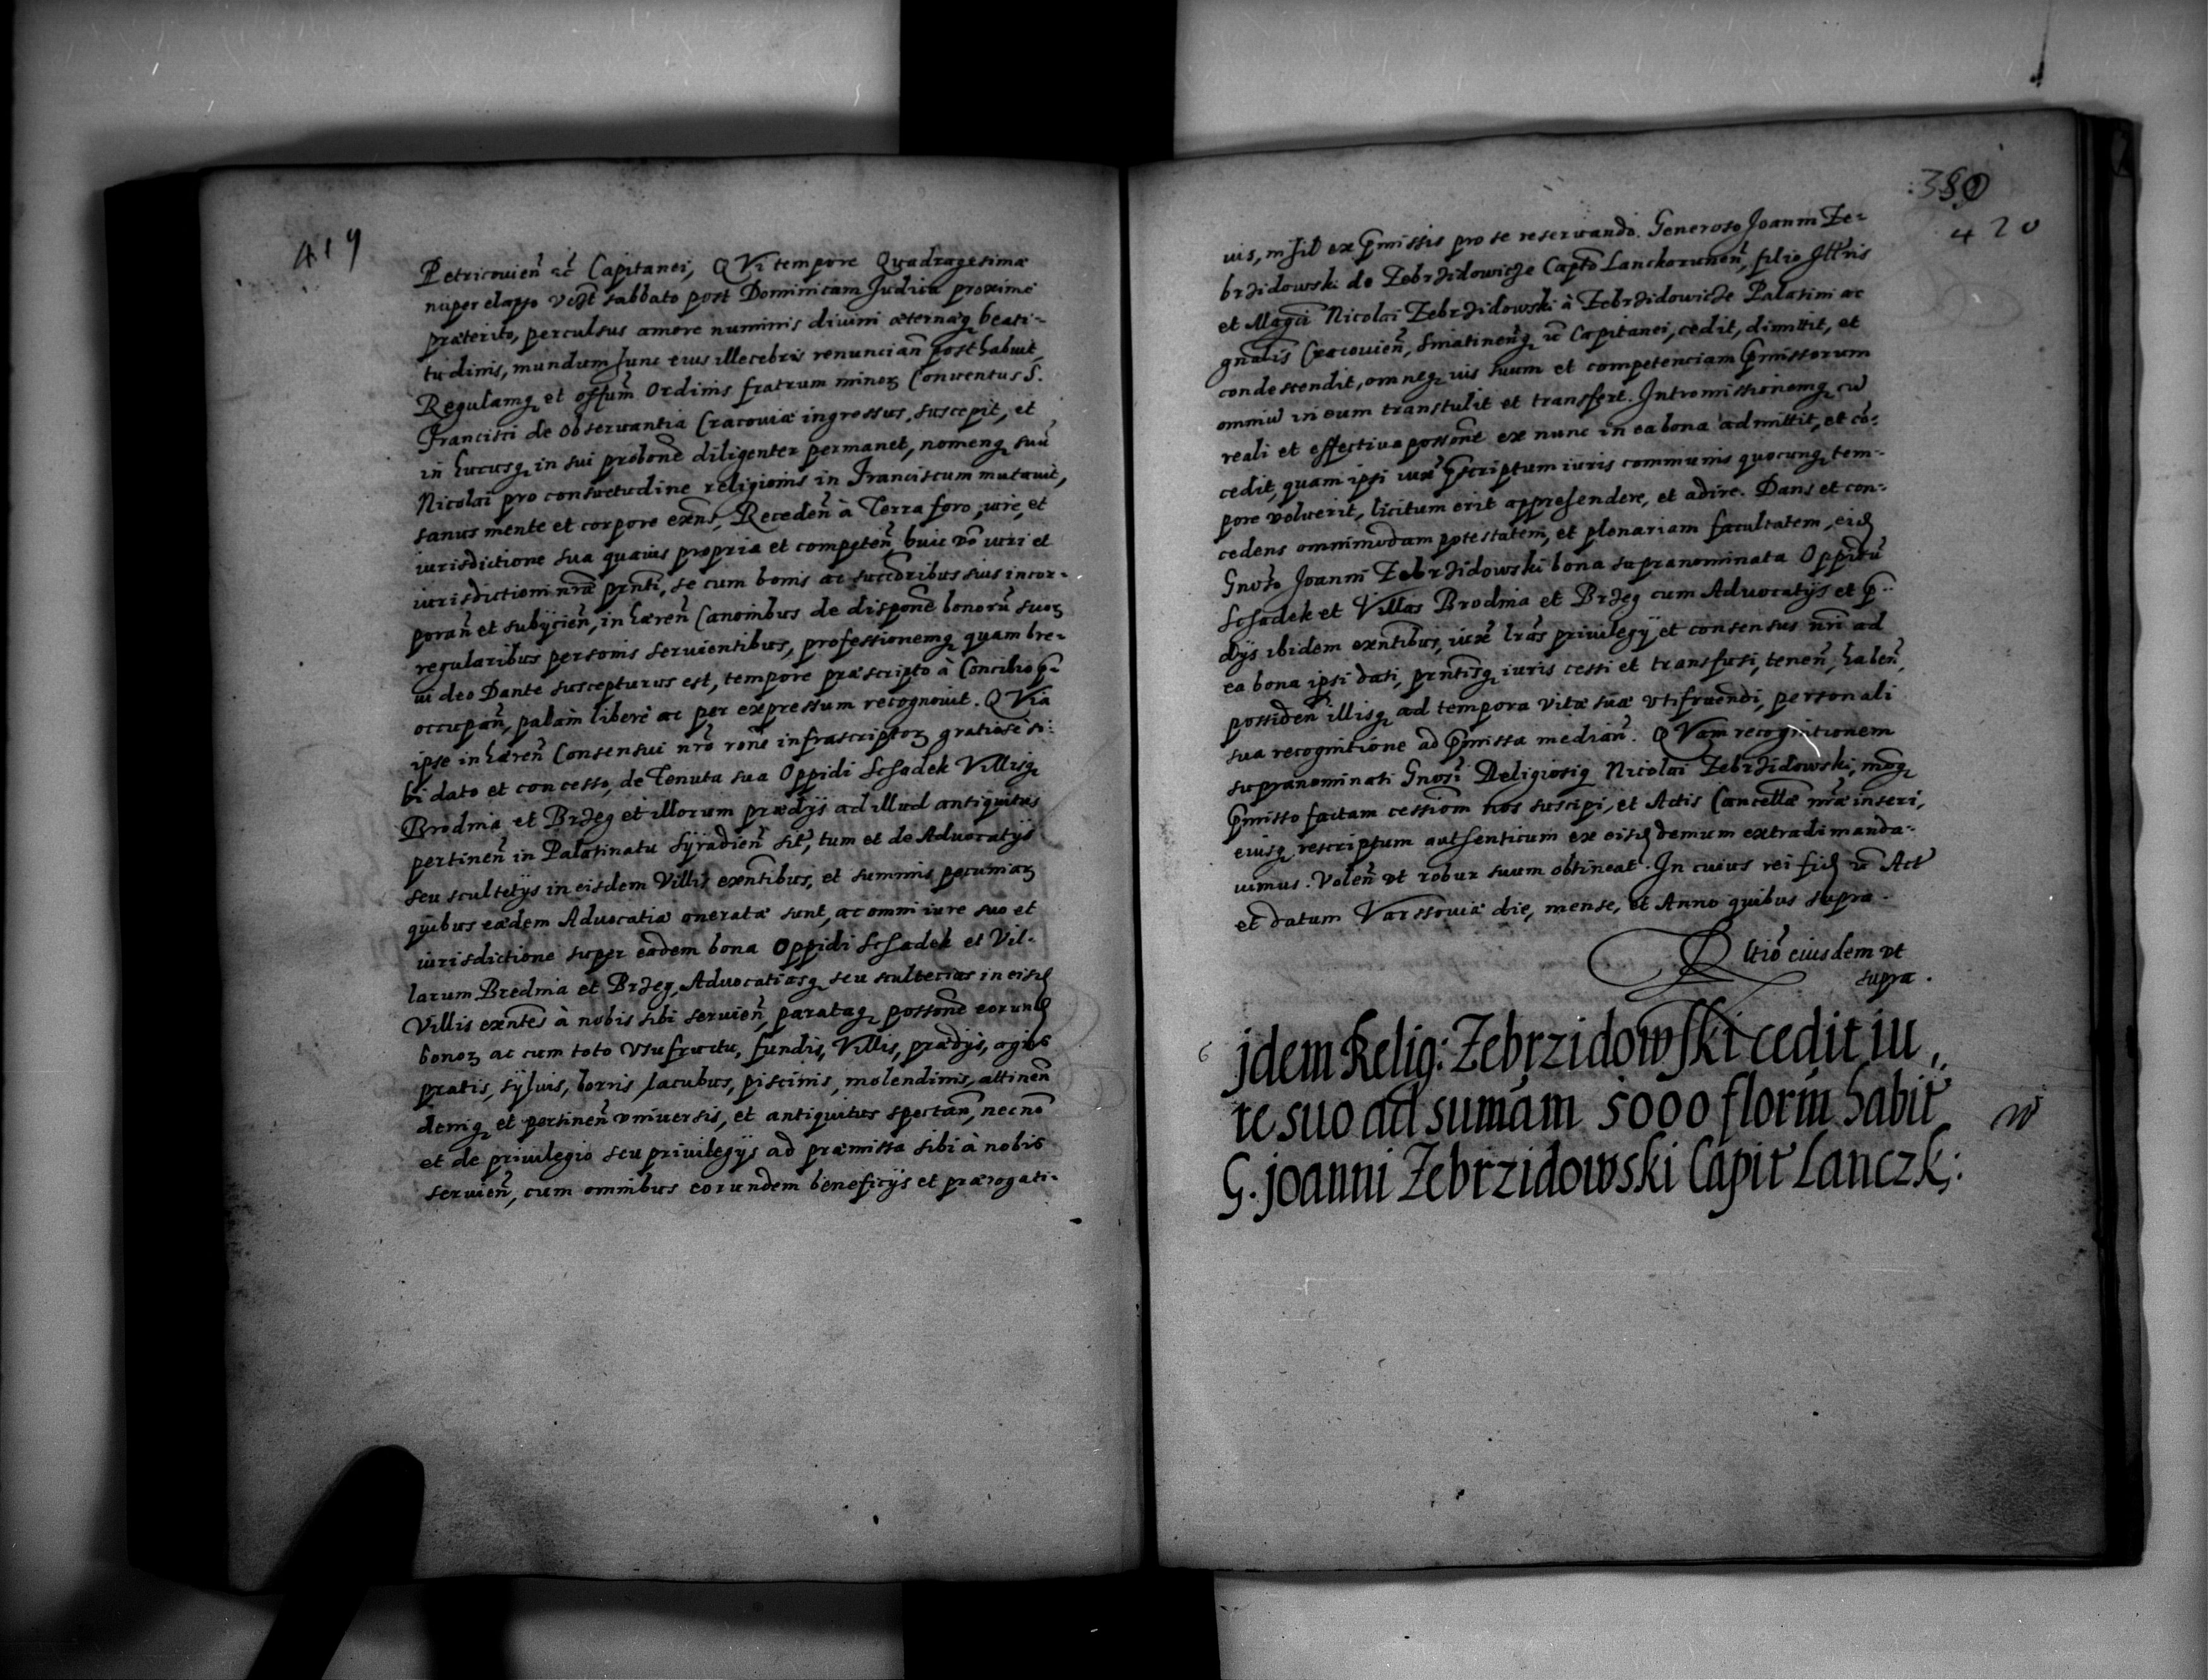 419
Petricovien̄ ec̄ Capitanei, QVi tempore Quadragesimæ
nuper elapso vizt sabbato post Dominicam Judica proxime
præterito, perculsus amore numinis divini æternæq beati-
tudinis, mundum hunc eius illecebris renuncian̄ posthabuit,
Regulamq et offum Ordinis fratrum minoꝝ Conventus S.
Francisci de observantia Cracoviæ ingressus, suscepit, et
in hucusq in sui probone diligenter permanet, nomenq suū
Nicolai pro consuetudine religionis in Franciscum mutavit,
sanus mente et corpore exns, Receden̄ à Terra foro, iure, et
iurisdictione sua quavis propria et competen̄, huic vō iuri et
iurisdictioni nræ prnti, se cum bonis ac succoribus suis incor-
poran̄ et subijcien̄, inhæren̄ Canonibus de dispone bonorū suoꝝ
regularibus personis servientibus, professionemq quam bre-
vi deo Dante suscepturus est, tempore præscripto à Concilio p-
occupan̄, palam libere ac per expressum recognovit. QVia
ipse inhæren̄ Consensui nro rone infrascriptoꝝ gratiose si-
bi dato et concesso, de Tenuta sua Oppidi Schadek Villisq
Brodnia et Brzeg et illorum prædijs ad illud antiquitus
pertinen̄ in Palatinatu Syradien̄ sit, tum et de Advocatijs
seu scultetijs in eisdem Villis exntibus, et summis pecuniaꝝ
quibus eædem Advocatiæ oneratæ sunt, ac omni iure suo et
iurisdictione super eadem bona Oppidi Schadek et Vil-
larum Brodnia et Brzeg, Advocatiasq seu scultetias in eisd
Villis exntes à nobis sibi servien̄, parataq possone eorund
bonoꝝ ac cum toto Vsufructu, fundis, Villis, prædijs, agris
pratis, sylvis, borris, lacubus, piscinis, molendinis, attinen̄
deniq et pertinen̄ vniversis, et antiquitus spectan̄, necno
et de privilegio seu privilegijs ad præmissa sibi à nobis
servien̄, cum omnibus eorundem beneficijs et prærogati-
380
420
vis, nihil ex pmissis pro se reservando. Generoso Joanni Ze-
brzidowski de Zebrzidowicze Capto Lanckorunen̄, filio Illris
et Magci Nicolai Zebrzidowski à Zebrzidowicze Palatini ac
gnalis Cracovien̄, Sniatinen̄q ec̄ Capitanei, cedit, dimittit, et
condescendit, omneq ius suum et competenciam pmissorum
omniū in eum transtulit et transfert. Intromissionemq cū
reali et effectiva possone ex nunc in ea bona admittit, et cō-
cedit, quam ipsi iuxta pscriptum iuris communis quocunq tem-
pore voluerit, licitum erit apprehendere, et adire. Dans et con-
cedens omnimodam potestatem, et plenariam facultatem, eid
Gnoso Joanni Zebrzidowski bona supranominata Oppidū
Schadek et Villas Brodnia et Brzeg cum Advocatijs et p-
dijs ibidem exntibus, iuxta lras privilegij et consensus nri ad
ea bona ipsi dati, prntisq iuris cessi et transfusi, tenen̄, haben̄,
possiden̄ illisq ad tempora vitæ suæ vtifruendi, personali
sua recognitione ad pmissa median̄. QVam recognitionem
supranominati Gnosi Religiosiq Nicolai Zebrzidowski, moq
pmisso factam cessiom nos suscipi, et Actis Cancellæ nræ inseri,
eiusq rescriptum authenticum ex eisd demum extradi manda-
vimus. Volen̄ vt robur suum obtineat. In cuius rei fid ec̄ Act
et datum Varssoviæ die, mense, et Anno quibus supra.
Rltio eiusdem vt
supra.
jdem Relig: Zebrzidowski cedit iu
re suo ad sumam 5000 florin habit
G. joanni Zebrzidowski Capit Lanczk: